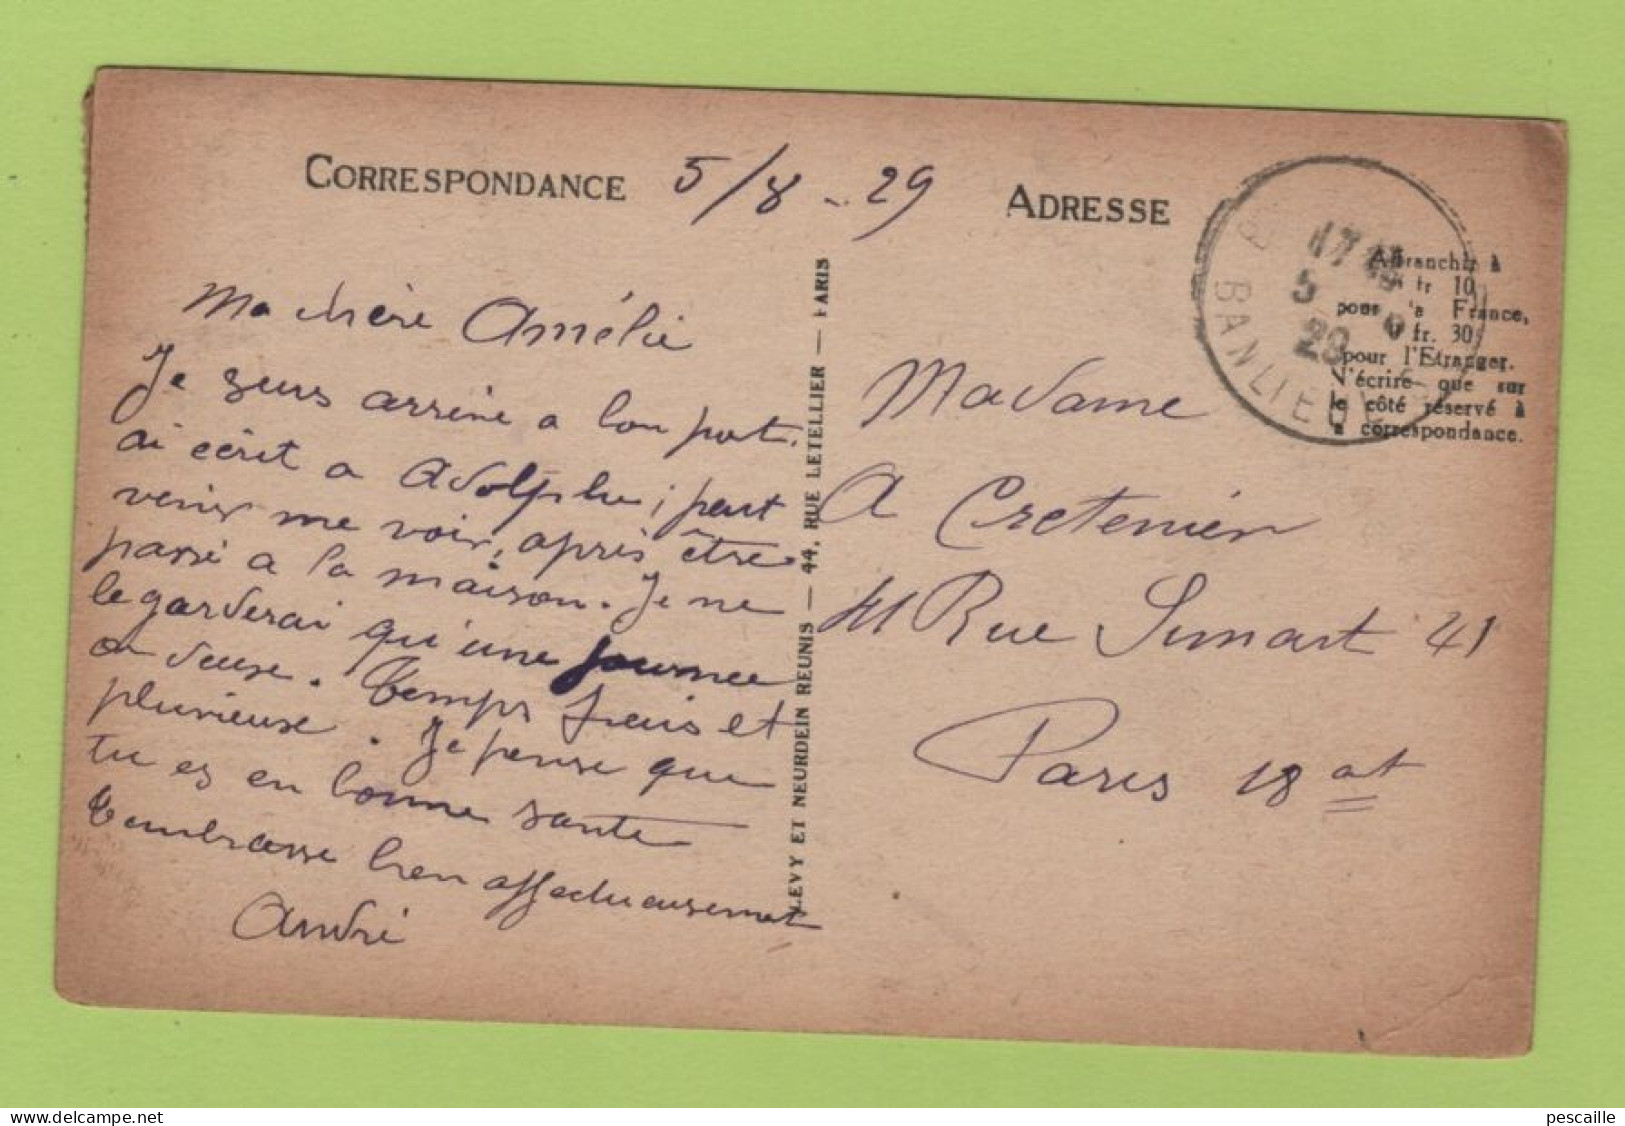 CORRESPONDANCE 5/8-29
Ma chère Amélie
Je suis arrivé a bon port.
ai écrit a Adolphe; peut
venir me voir, après être
passé a la maison. Je ne
le garderai qu'une journée
ou deux. Temps frais et
pluvieux. Je pense que
tu es en bonne santé
T'embrasse bien affectueusement
André
LEVY ET NEURDEIN REUNIS — 44, RUE LETELLIER — PARIS
ADRESSE
17
5 8
29
BANLIEUE
Affranchir à
fr 10
pour la France,
fr. 30
pour l'Etranger.
N'écrire que sur
le côté réservé à
la correspondance.
Madame
A Cretenier
41 Rue Simart 41
Paris 18 at
pescaille
delcampe.net